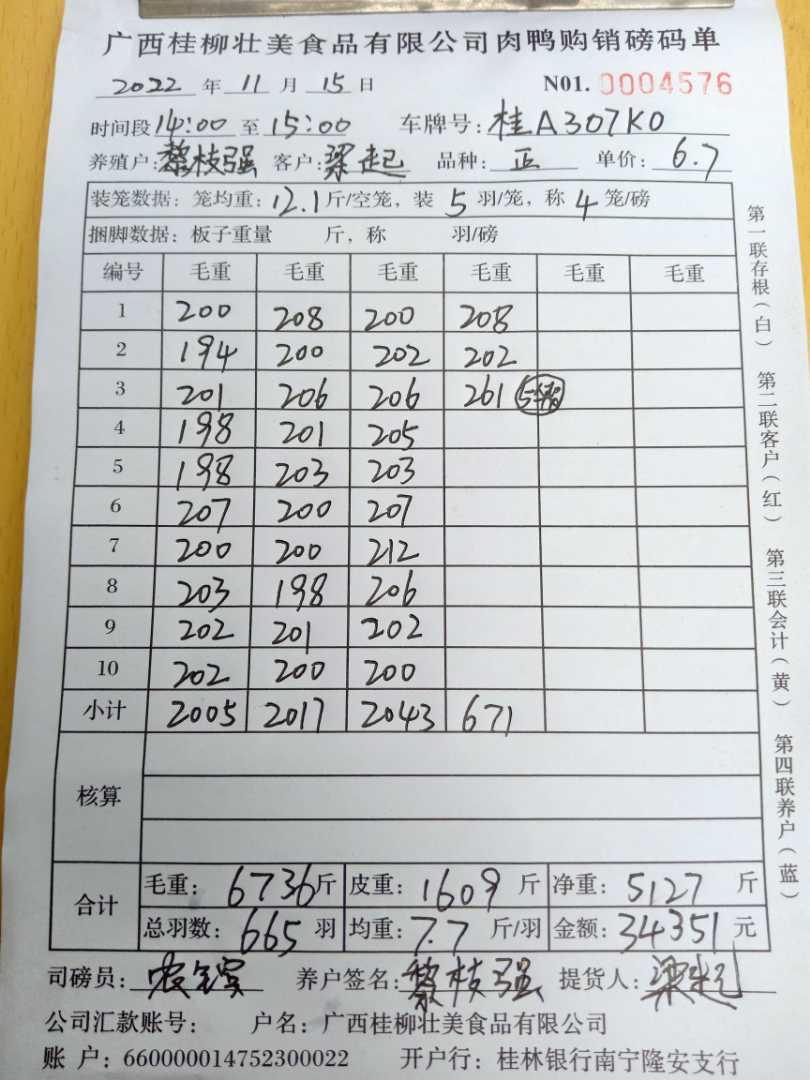 广西桂柳壮美食品有限公司肉鸭购销磅码单
2022 年 11 月 15 日 N01. 0004576
时间段 14:00 至 15:00 车牌号: 桂A307K0
养殖户: 黎枝强 客户: 梁起 品种: 正 单价: 6.7
装笼数据: 笼均重: 12.1 斤/空笼, 装 5 羽/笼, 称 4 笼/磅
捆脚数据: 板子重量 斤, 称 羽/磅
编号 毛重 毛重 毛重 毛重 毛重 毛重
1 200 208 200 208
2 194 200 202 202
3 201 206 206 261 5笼
4 198 201 205
5 198 203 203
6 207 200 207
7 200 200 212
8 203 198 206
9 202 201 202
10 202 200 200
小计 2005 2017 2043 671
核算
合计
毛重: 6736 斤 皮重: 1609 斤 净重: 5127 斤
总羽数: 665 羽 均重: 7.7 斤/羽 金额: 34351 元
司磅员: 养户签名: 黎枝强 提货人: 梁起
公司汇款账号: 户名: 广西桂柳壮美食品有限公司
账 户: 660000014752300022 开户行: 桂林银行南宁隆安支行
第一联存根(白)
第二联客户(红)
第三联会计(黄)
第四联养户(蓝)